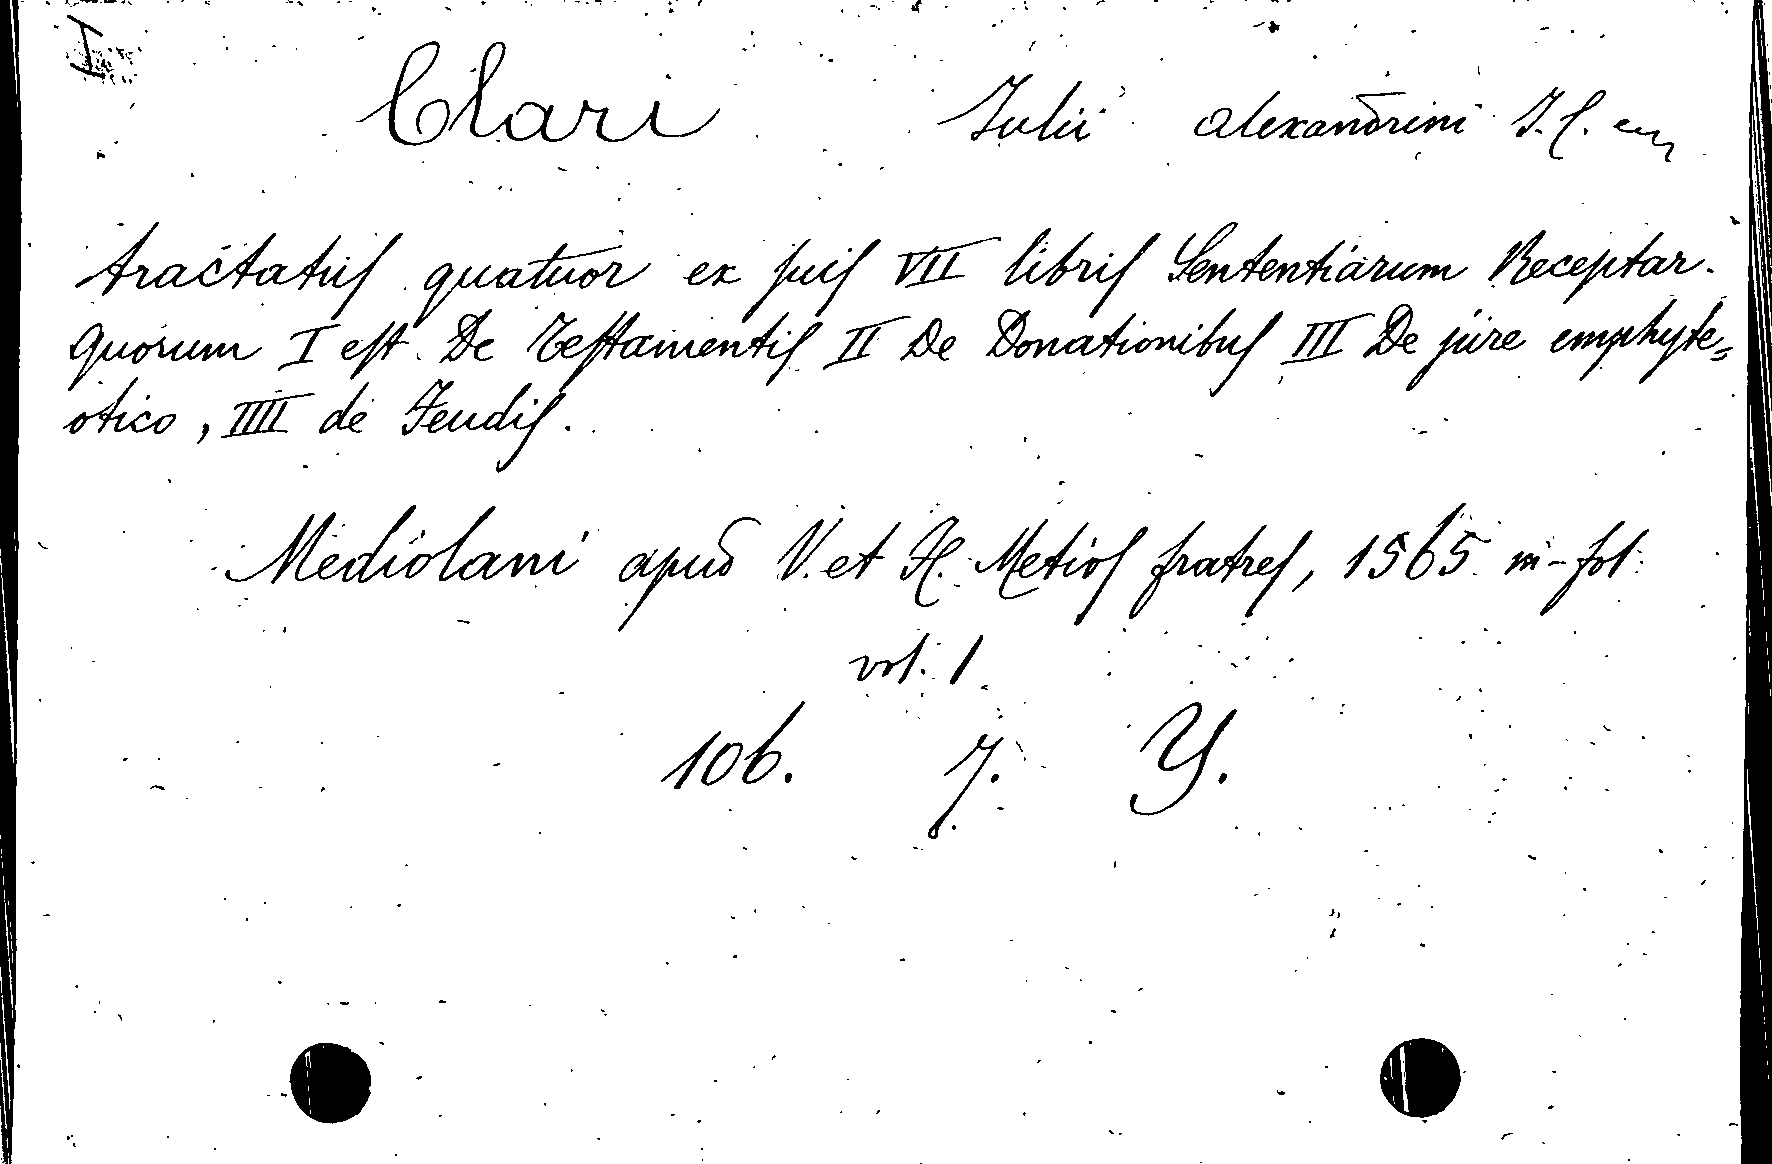 I
Clari Julii Alexandrini J. C.
tractatus quatuor ex suis VII libris Sententiarum Receptar.
quorum I est De Testamentis II De Donationibus III De jure emphyte=
otico, IIII de Feudis.
Mediolani apud V. et H. Metios fratres, 1565 in-fol.
vol. 1
106. 7. Y.